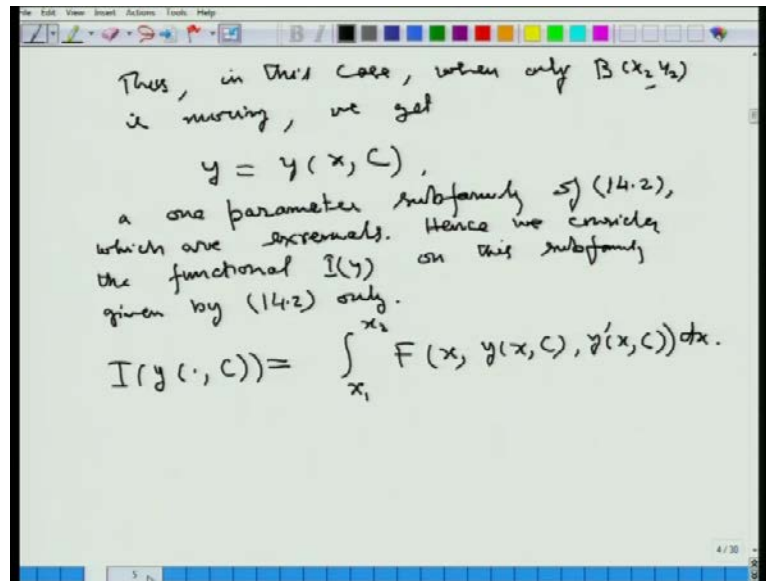 File Edit View Insert Actions Tools Help
Thus, in this case, when only B(x₂ y₂)
is moving, we get
y = y(x, C),
a one parameter subfamily of (14.2),
which are extremals. Hence we consider
the functional I(y) on this subfamily
given by (14.2) only.
I(y(·, C)) = ∫_{x₁}^{x₂} F(x, y(x, C), y'(x, C)) dx.
4 / 30
5